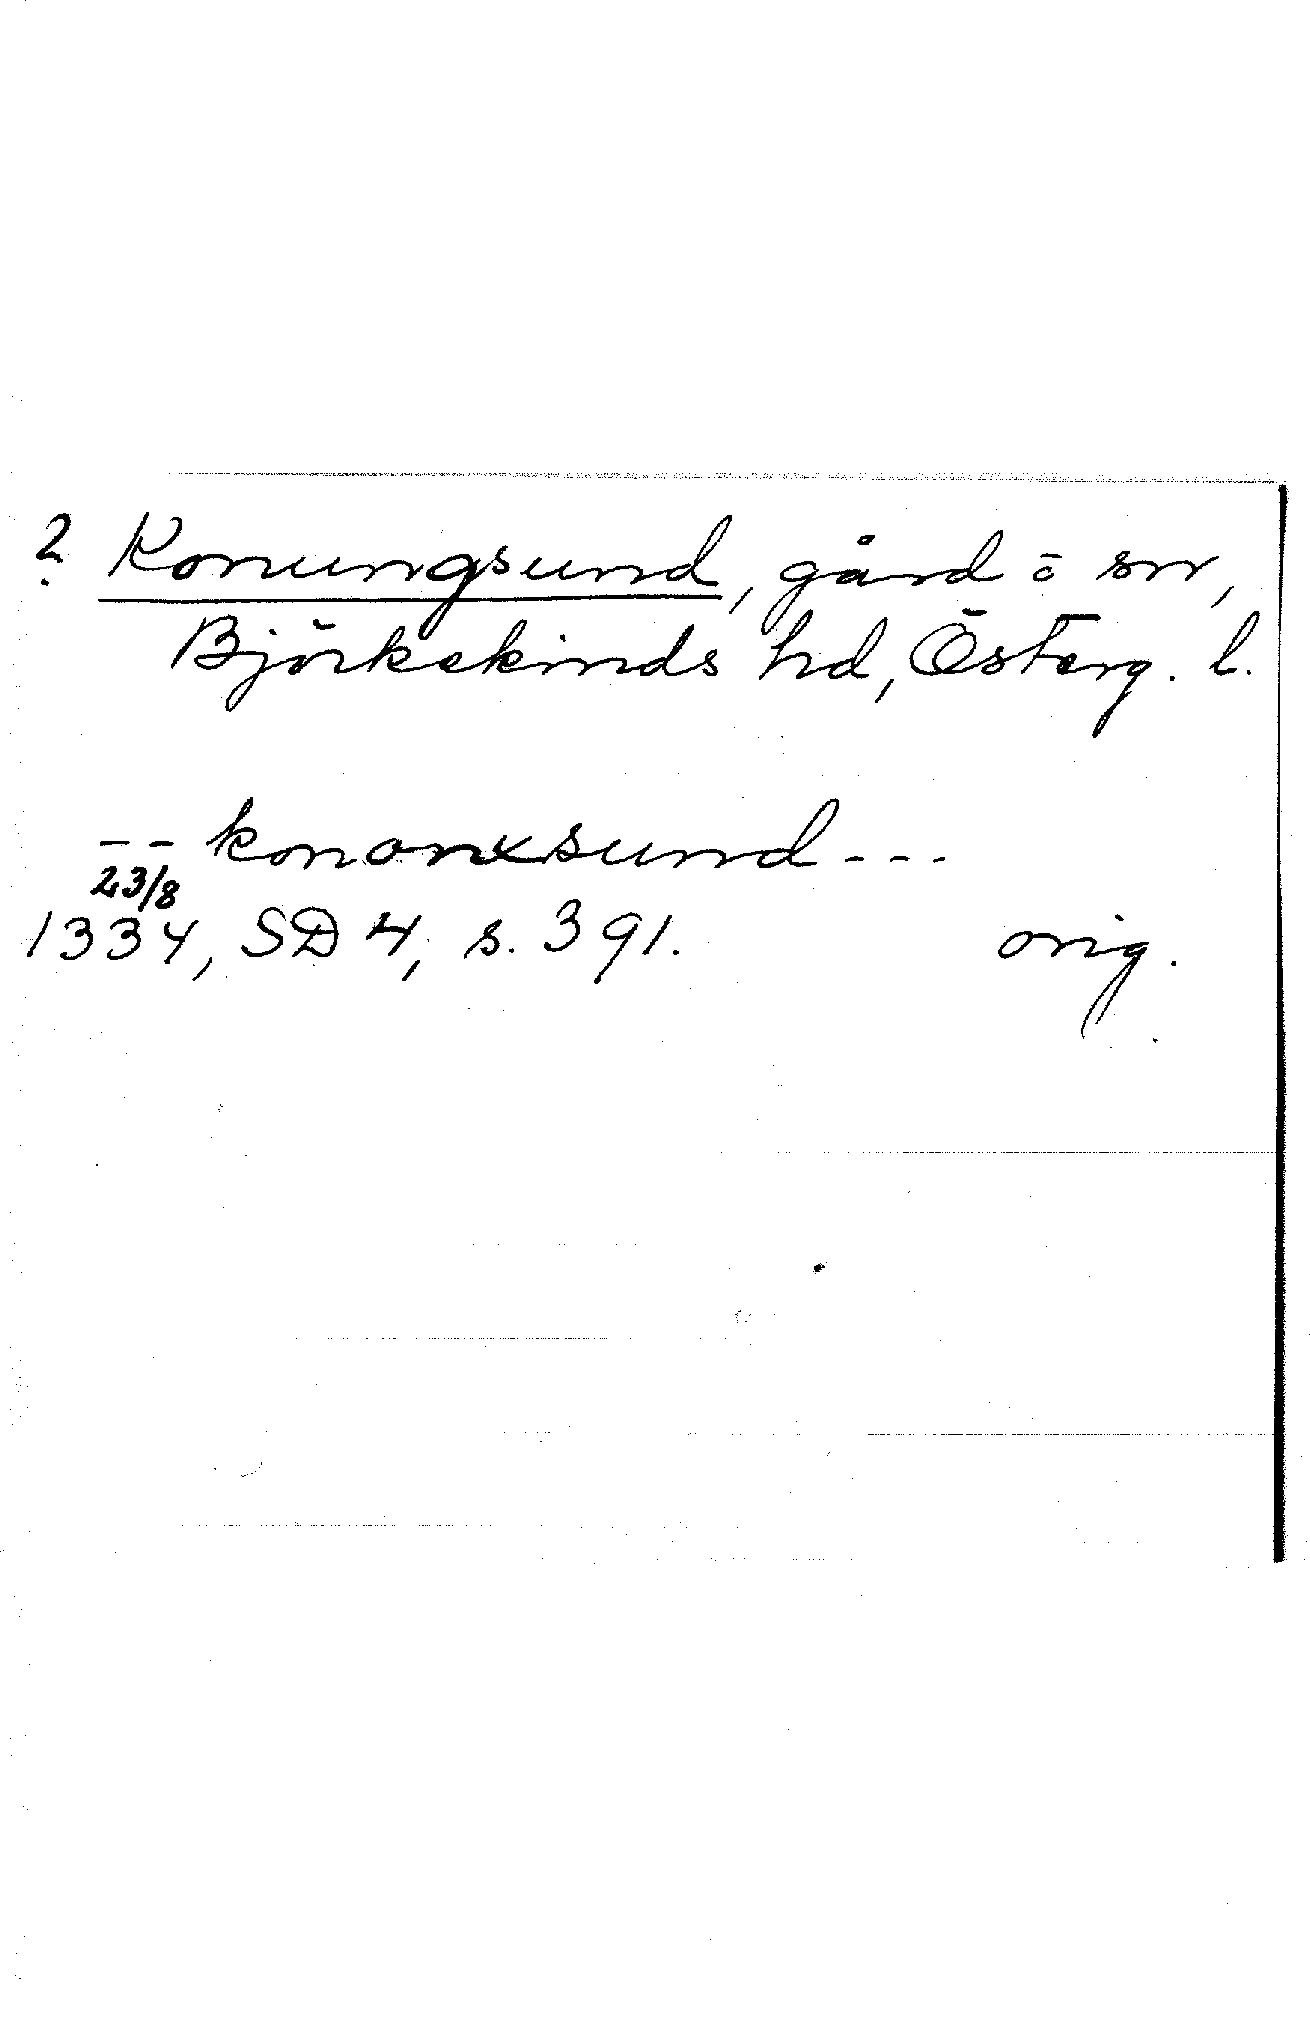 ? Konungsund, gård o sn,
Björkekinds hd, Österg. l.
-- kononxsund ---
23/8
1334, SD 4, s. 391. orig.